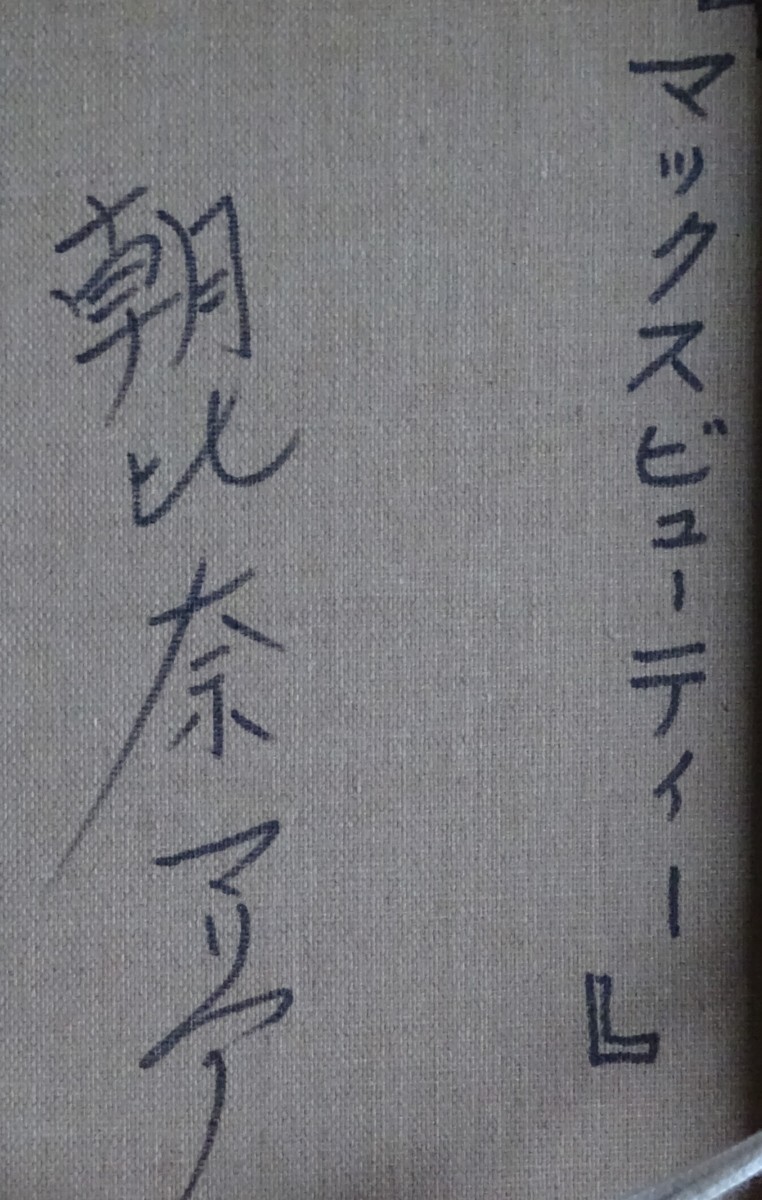 『マックスビューティー』
朝比奈マリア